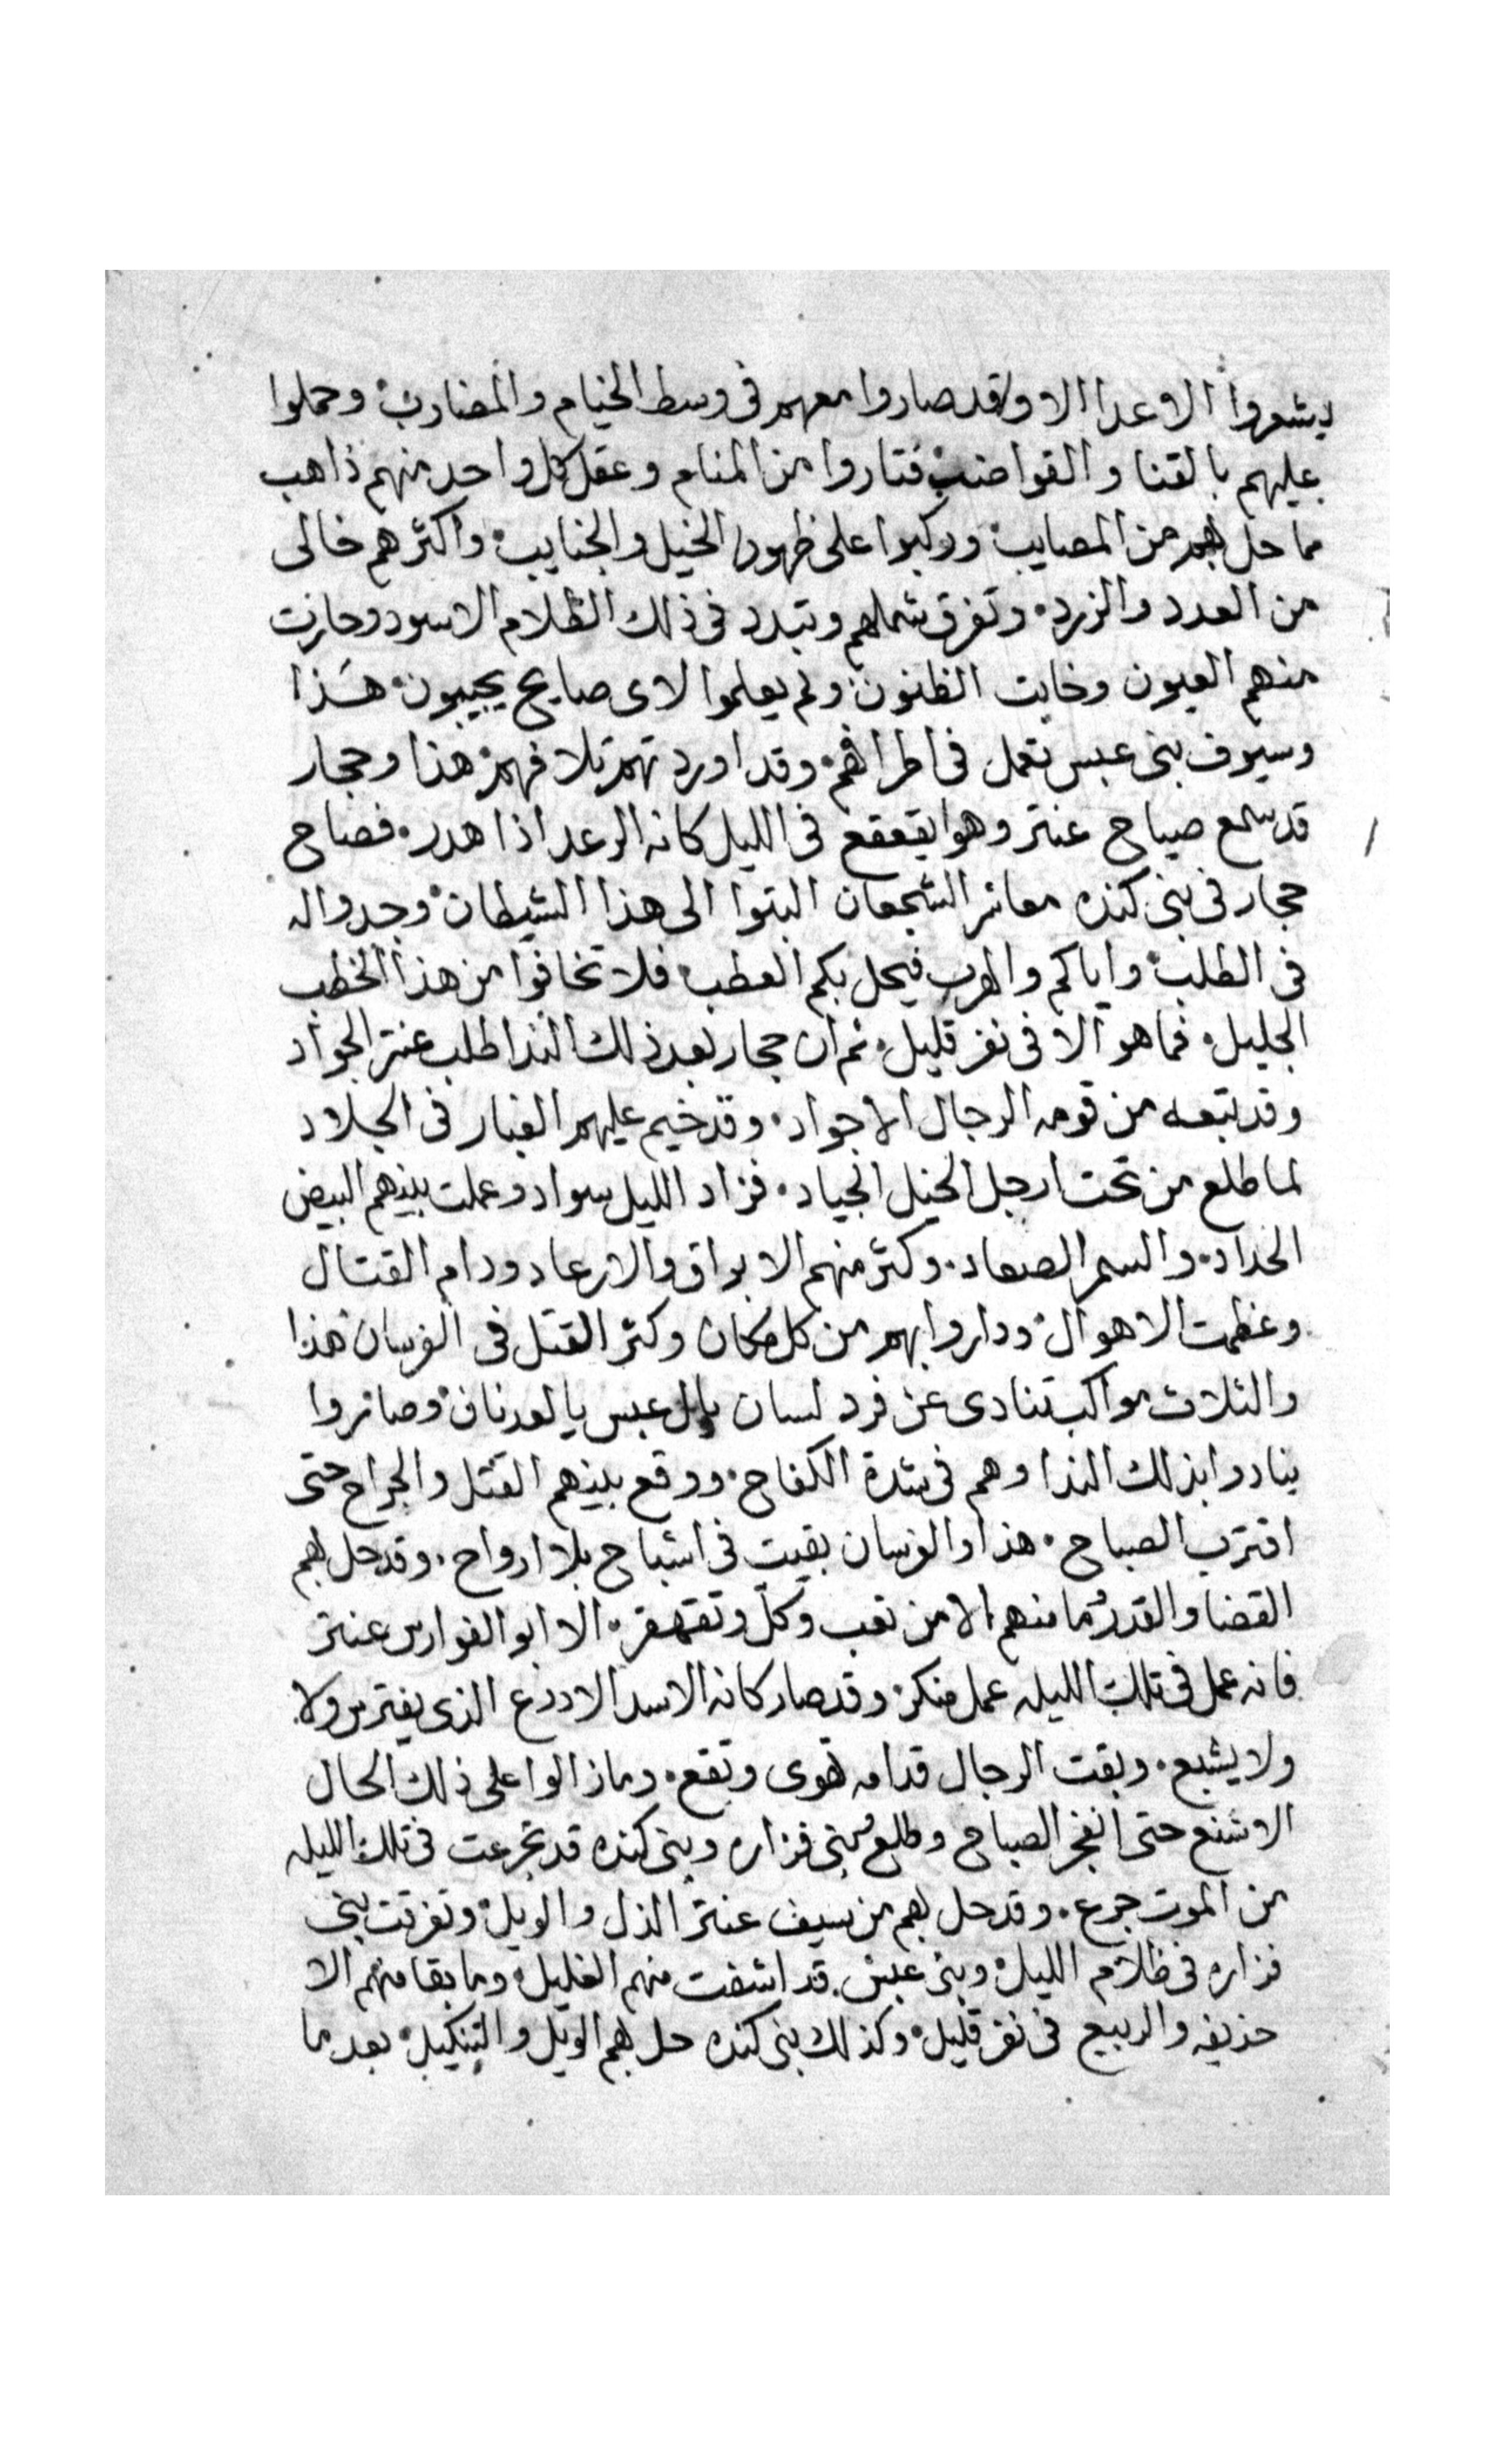 يشعروا الاعدا الا وقد صاروا معهم فى وسط الخيام والمضارب وحملوا
عليهم بالقنا والقواضب فتاروا من المنام وعقل كل واحد منهم ذاهب
مما حل بهم من المصايب وركبوا على ظهور الخيل والجنايب واكثرهم خالى
من العدد والزرد وتفرق شملهم وتبدد فى ذلك الظلام الاسود وحارت
منهم العيون وخابت الظنون ولم يعلموا لاى صايح يجيبون هذا
وسيوف بنى عبس تعمل فى اطرافهم وقد اوردتهم تلافهم هذا وحجار
قد سمع صياح عنتر وهو يقعقع فى الليل كانه الرعد اذا هدر فصاح
حجار فى بنى كنده معاشر الشجعان اتبتوا الى هذا الشيطان وجدوا له
فى الطلب واياكم والهرب فيحل بكم العطب فلا تخافوا من هذا الخطب
الجليل فما هو الا فى نفر قليل ثم ان حجار بعد ذلك الندا طلب عنتر الجواد
وقد تبعه من قومه الرجال الاجواد وقد خيم عليهم الغبار فى الجلاد
لما طلع من تحت ارجل الخيل الجياد فزاد الليل سواد وعملت بينهم البيض
الحداد والسمر الصعاد وكثر منهم الابراق والارعاد ودام القتال
وعظمت الاهوال وداروا بهم من كل مكان وكثر القتل فى الفرسان هذا
والثلاث مواكب تنادى عن فرد لسان يال عبس يا لعدنان وصاروا
ينادوا بذلك الندا وهم فى شدة الكفاح ووقع بينهم القتل والجراح حتى
اقترب الصباح هذا والفرسان بقيت فى اشباح بلا ارواح وقد حل بهم
القضا والقدر وما منهم الا من تعب وكلّ وتقهقر الا ابو الفوارس عنتر
فانه عمل فى تلك الليله عمل منكر وقد صار كانه الاسد الادرع الذى يفترس ولا
ولا يشبع وبقت الرجال قدامه تهوى وتقع وما زالوا على ذلك الحال
الاشنع حتى انفجر الصباح وطلع وبنى فزاره وبنى كنده قد تجرعت فى تلك الليله
من الموت جرع وقد حل بهم من سيف عنتر الذل والويل وتفرقت بنى
فزاره فى ظلام الليل وبنى عبس قد اشفت منهم الغليل وما بقا منهم الا
حذيفه والربيع فى نفر قليل وكذلك بنى كنده حل بهم الويل والتنكيل بعد ما